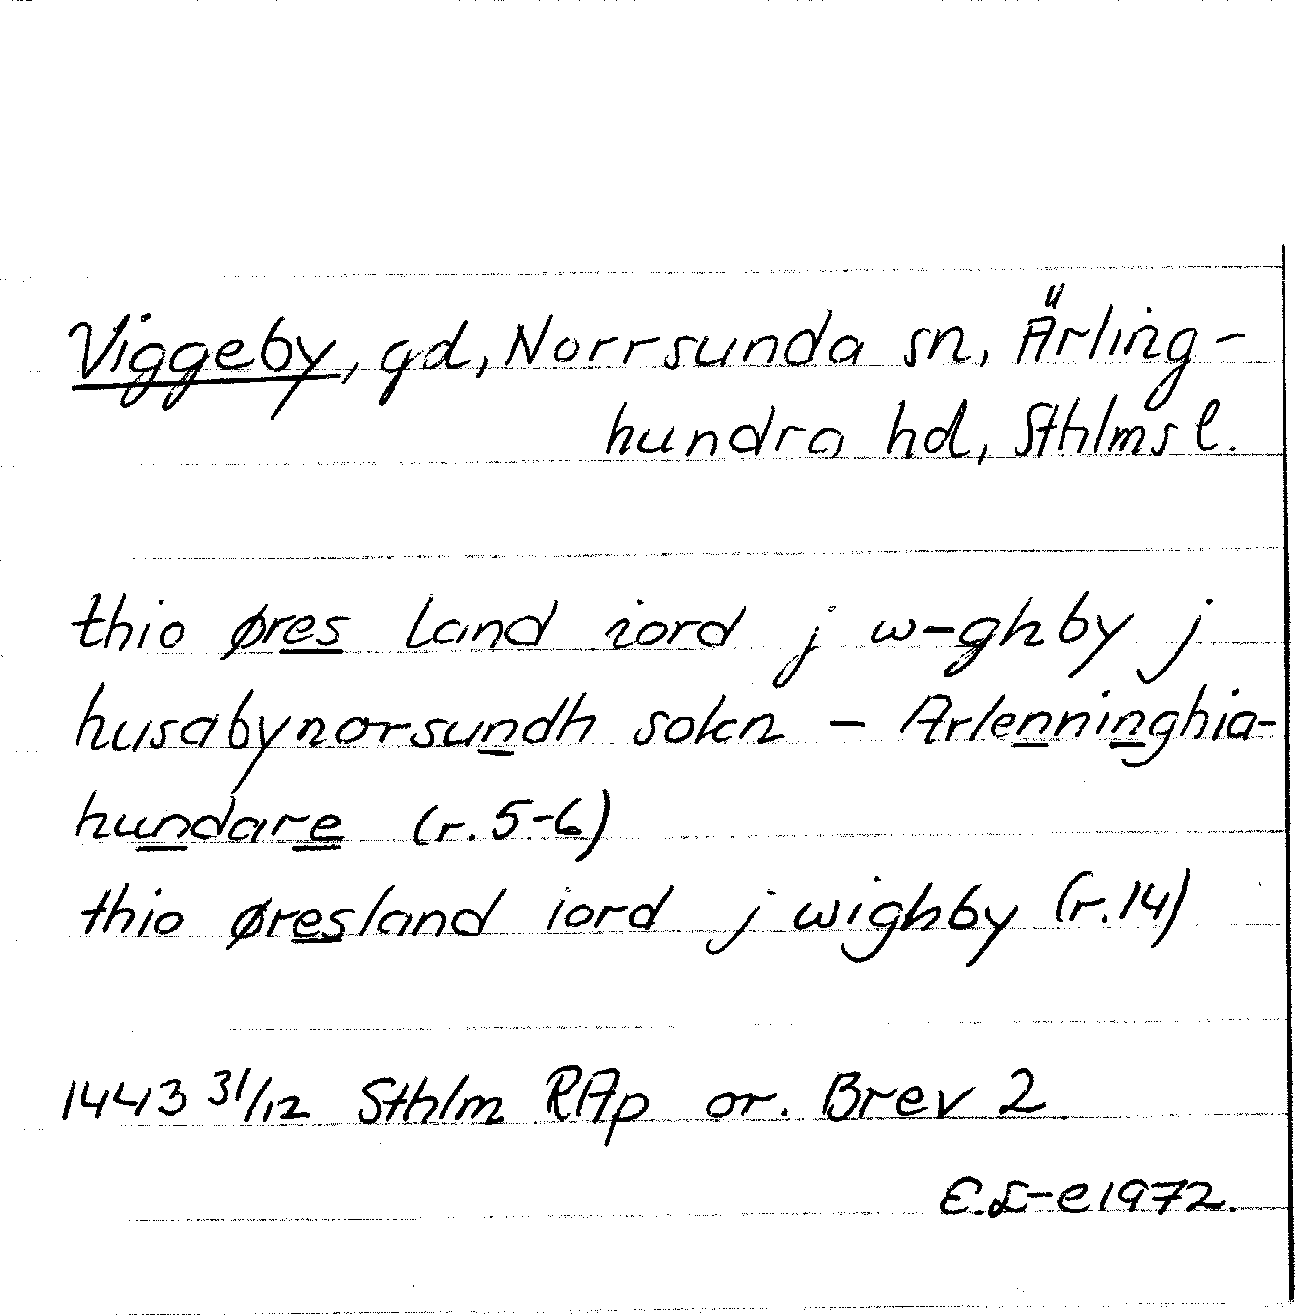 Viggeby, gd, Norrsunda sn, Ärling-
hundra hd, Sthlms l.
thio øres land iord j w-ghby j
husabynorsundh sokn - Arlenninghia-
hundare (r. 5-6)
thio øresland iord j wighby (r. 14)
1443 31/12 Sthlm RAp or. Brev 2
E.L-e 1972.